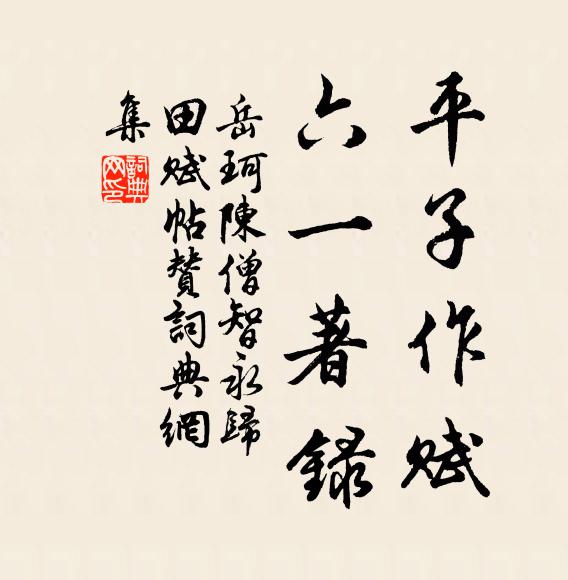 平子作賦
六一著錄
岳珂陳僧智永歸
田賦帖贊詞典網
集
詞典網印